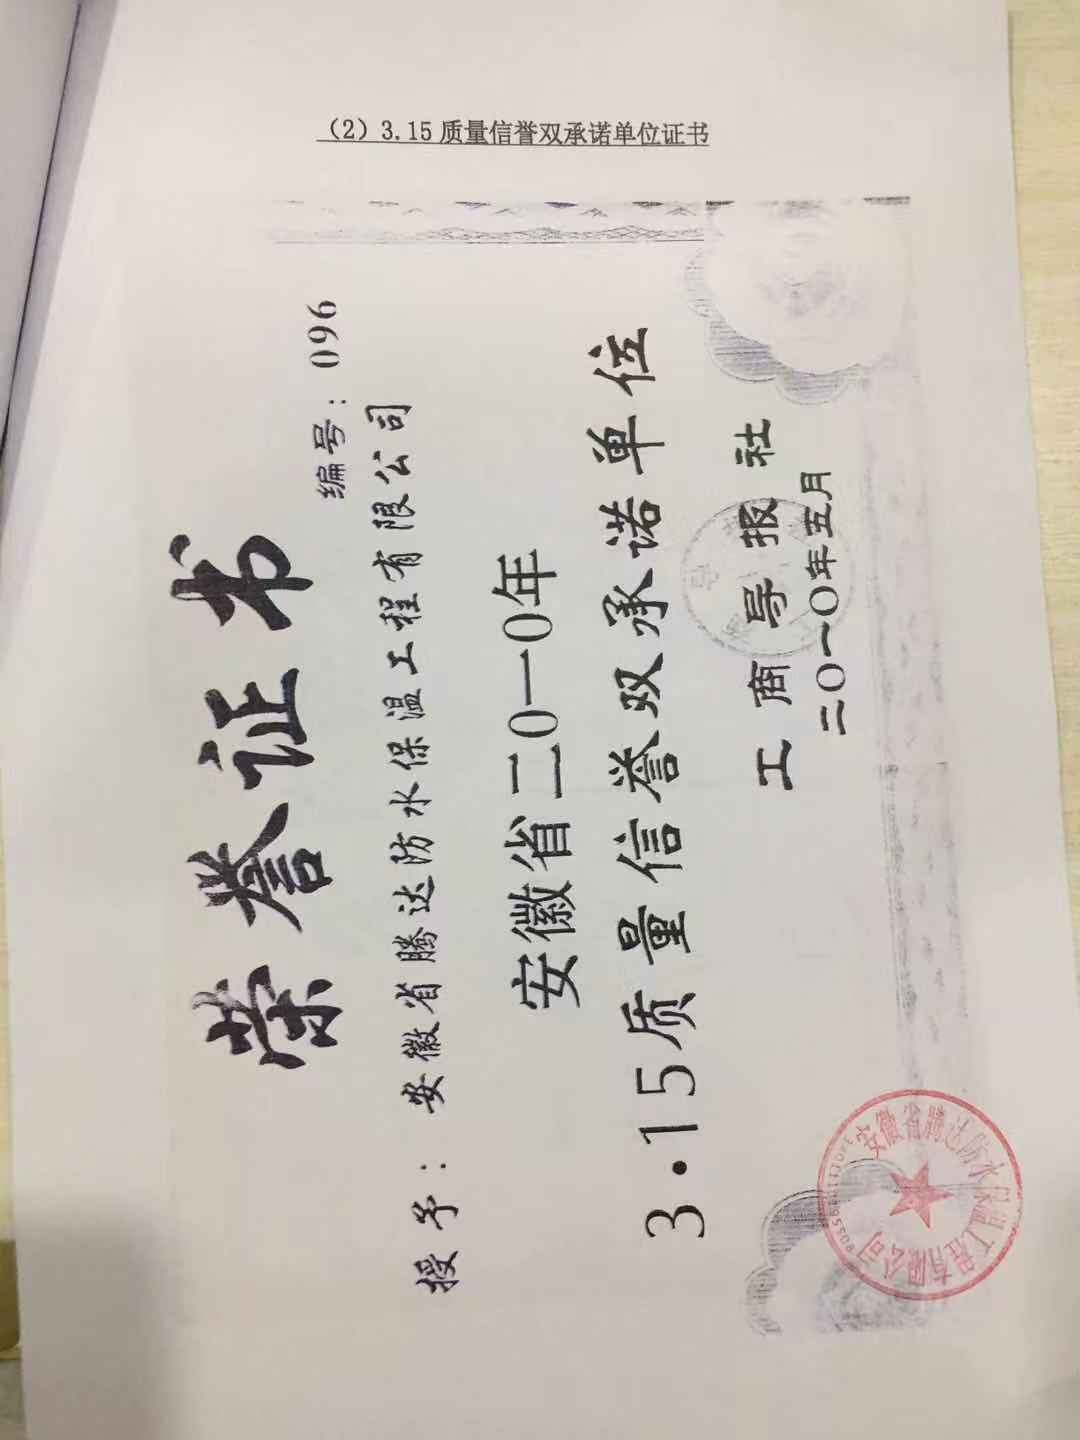 （2）3.15 质量信誉双承诺单位证书
荣誉证书
编号：096
授予：安徽省腾达防水保温工程有限公司
安徽省二〇一〇年
3·15质量信誉双承诺单位
工商导报社
二〇一〇年五月
安徽省腾达防水保温工程有限公司